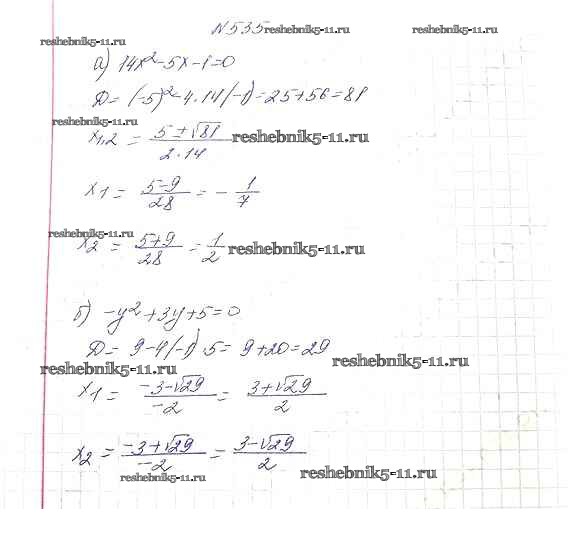 N535 reshebnik5-11.ru reshebnik5-11.ru
reshebnik5-11.ru
а) 14x²-5x-1=0
D=(-5)²-4·14(-1)=25+56=81
reshebnik5-11.ru
x1,2 = (5±√81)/(2·14) reshebnik5-11.ru
x1 = (5-9)/28 = -1/7
reshebnik5-11.ru
x2 = (5+9)/28 = 1/2 reshebnik5-11.ru
б) -y²+3y+5=0
D= 9-4(-1)·5= 9+20=29
reshebnik5-11.ru reshebnik5-11.ru
x1 = (-3-√29)/-2 = (3+√29)/2
x2 = (-3+√29)/-2 = (3-√29)/2
reshebnik5-11.ru reshebnik5-11.ru